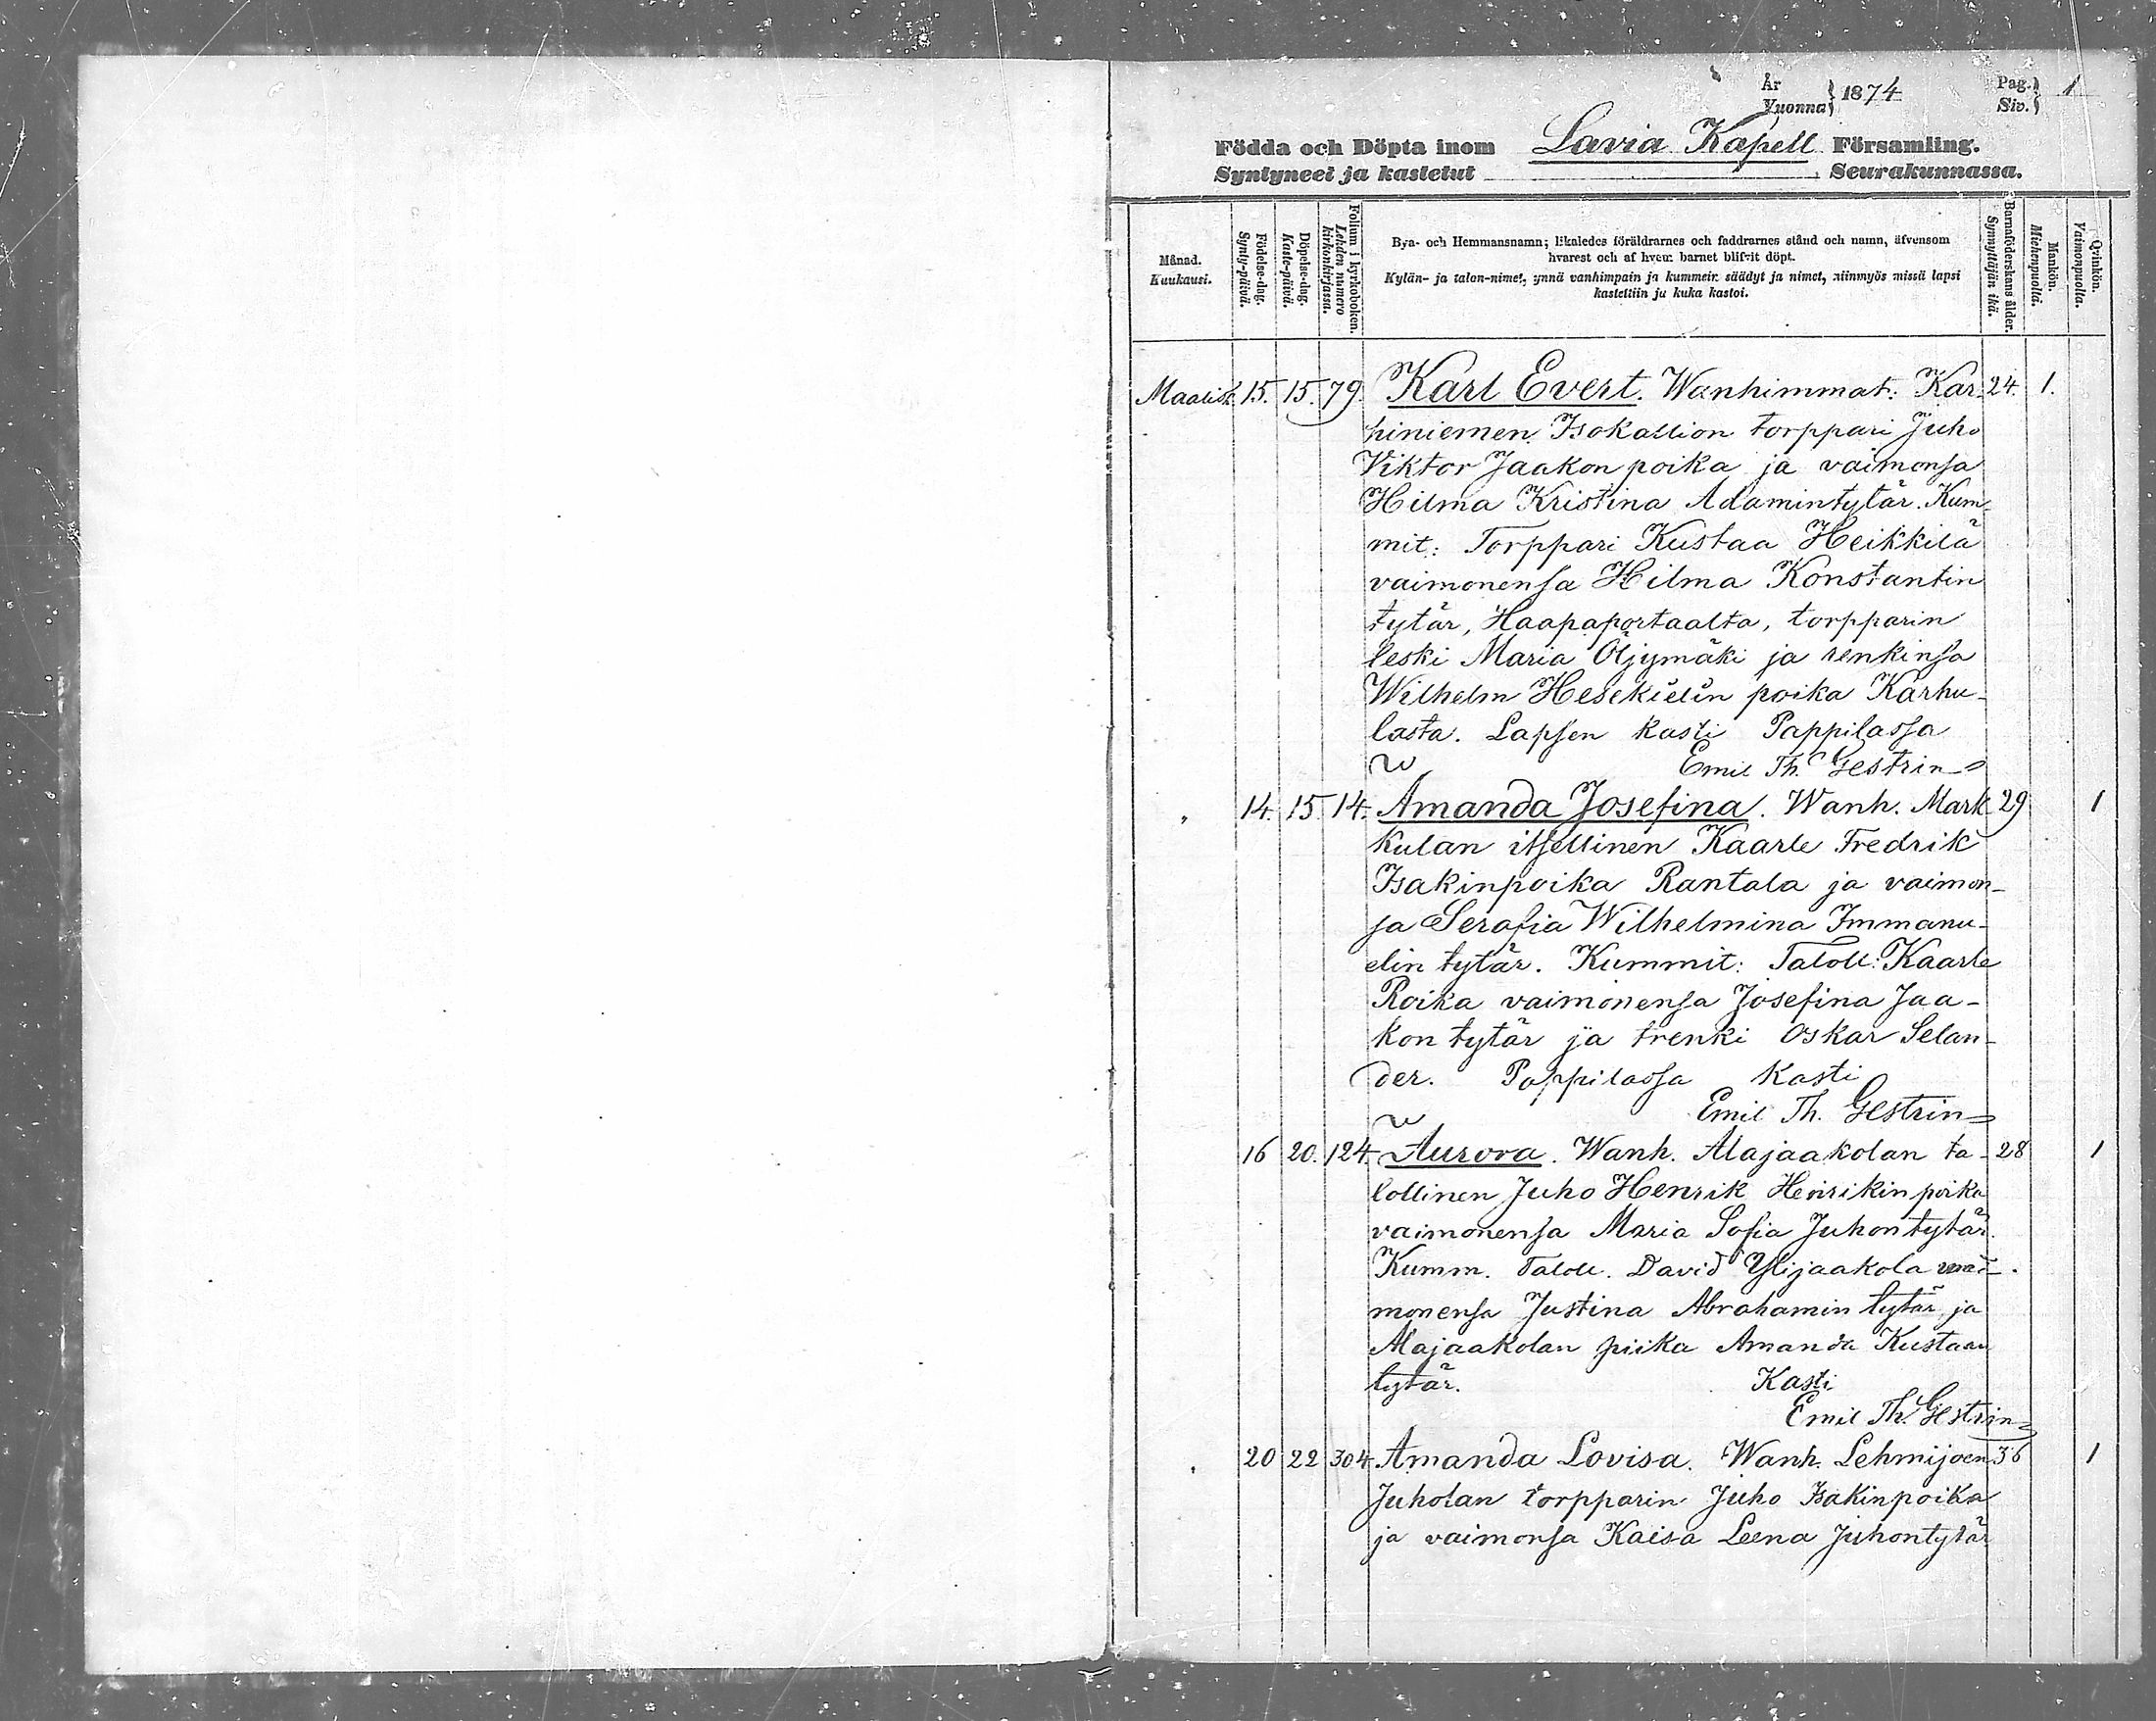 År
Vuonna } 1874
Pag.
Siv. } 1
Födda och Döpta inom Lavia Kapell Församling.
Syntyneet ja kastetut Seurakunnassa.
Månad.
Kuukausi.
Födelse-dag.
Synty-päivä.
Döpelse-dag.
Kaste-päivä.
Folium i kyrkoboken.
Lehden numero
kirkonkirjassa.
Bya- och Hemmansnamn; likaledes föräldrarnes och faddrarnes stånd och namn, äfvensom
hvarest och af hvem barnet blifvit döpt.
Kylän- ja talon-nimet, ynnä vanhimpain ja kummein säädyt ja nimet, niinmyös missä lapsi
kastettiin ja kuka kastoi.
Barnaföderskans ålder.
Synnyttäjän ikä.
Mankön.
Miehenpuolia.
Qvinkön.
Vaimonpuolia.
Maalisk. 15. 15. 79. Karl Evert. Wanhimmat: Kar- 24. 1.
hiniemen Isokallion torppari Juho
Viktor Jaakon poika ja vaimonsa
Hilma Kristina Adamintytär. Kum-
mit: Torppari Kustaa Heikkilä
vaimonensa Hilma Konstantin
tytär, Haapaportaalta, torpparin
leski Maria Öljymäki ja renkinsä
Wilhelm Hesekielin poika Karhu-
lasta. Lapsen kasti Pappilassa
Emil Th. Gestrin
" 14. 15. 14. Amanda Josefina. Wanh. Mark 29 1
kulan itsellinen Kaarle Fredrik
Isakinpoika Rantala ja vaimon-
sa Serafia Wilhelmina Immanu-
elin tytär. Kummit: Taloll: Kaarle
Roika vaimonensa Josefina Jaa-
kon tytär ja trenki Oskar Selan-
der. Pappilassa Kasti
Emil Th. Gestrin
16 20. 124. Aurora. Wanh. Alajaakolan ta- 28 1
lollinen Juho Henrik Henrikin poika
vaimonensa Maria Sofia Juhon tytär.
Kumm. Taloll. David Ylijaakola vai-
monensa Justina Abrahamin tytär ja
Alajaakolan piika Amanda Kustaan
tytär. Kasti
Emil Th. Gestrin
" 20 22 304 Amanda Lovisa. Wanh. Lehmijoen 36 1
Juholan torpparin Juho Isakinpoika
ja vaimonsa Kaisa Leena Juhontytär